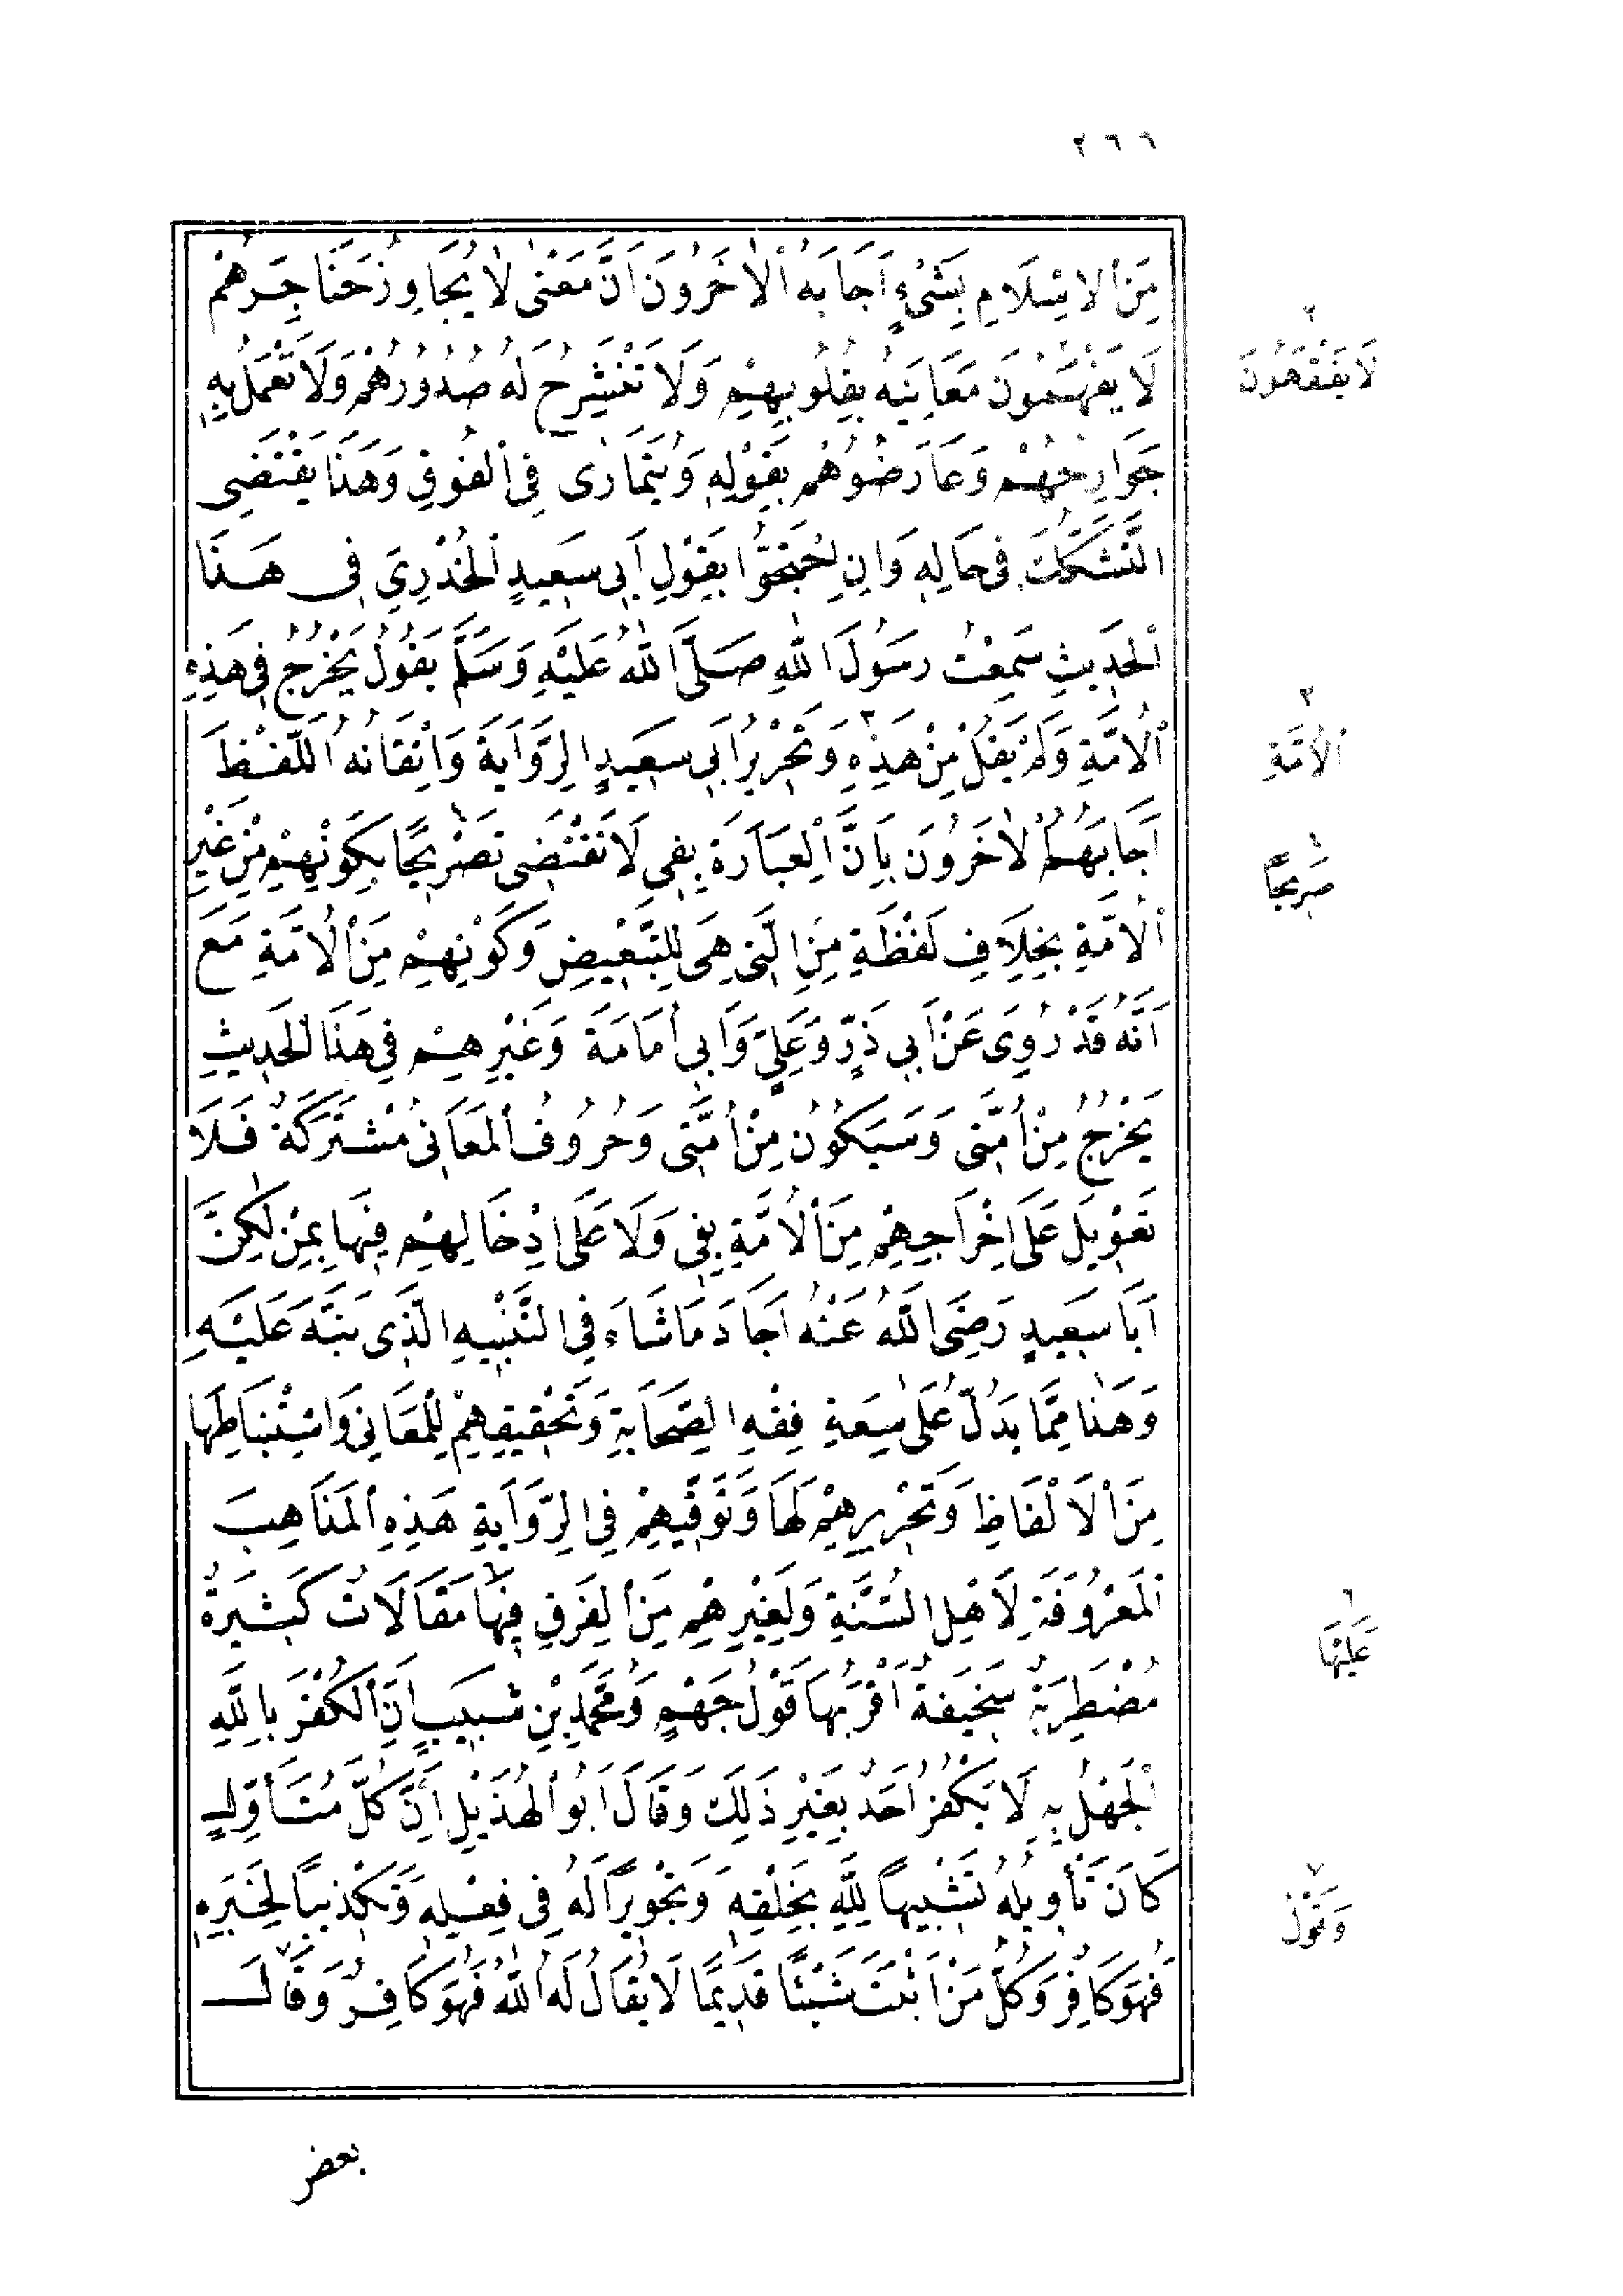 ٢٦٦
مِنَ الْاِسْلَامِ بِشَىْءٍ اَجَابَهُ الْاٰخَرُونَ اَنَّ مَعْنٰى لَا يُجَاوِزُ حَنَاجِرَهُمْ
لَا يَفْهَمُونَ مَعَانِيَهُ بِقُلُوبِهِمْ وَلَا تَنْشَرِحُ لَهُ صُدُورُهُمْ وَلَا تَعْمَلُ بِهِ
لَا يَفْقَهُونَ
جَوَارِحُهُمْ وَعَارَضُوهُمْ بِقَوْلِهِ وَيَتَمَارٰى فِى الْفُوقِ وَهٰذَا يَقْتَضِى
التَّشَكُّكَ فِى حَالِهِ وَاِنِ احْتَجُّوا بِقَوْلِ اَبِى سَعِيدٍ الْخُدْرِيِّ فِى هٰذَا
الْحَدِيثِ سَمِعْتُ رَسُولَ اللّٰهِ صَلَّى اللّٰهُ عَلَيْهِ وَسَلَّمَ يَقُولُ يَخْرُجُ فِى هٰذِهِ
الْاُمَّةِ وَلَمْ يَقُلْ مِنْ هٰذِهِ ٣ وَتَحْرِيرُ اَبِى سَعِيدٍ الرِّوَايَةَ وَاِتْقَانُهُ اللَّفْظَ
٣ الْاُمَّةِ
اَجَابَهُمُ الْاٰخَرُونَ بِاَنَّ الْعِبَارَةَ بِفِى لَا تَقْتَضِى تَصْرِيحًا بِكَوْنِهِمْ مِنْ غَيْرِ
صَرِيحًا
الْاُمَّةِ بِخِلَافِ لَفْظَةِ مِنِ الَّتِى هِىَ لِلتَّبْعِيضِ وَكَوْنِهِمْ مِنَ الْاُمَّةِ مَعَ
اَنَّهُ قَدْ رُوِىَ عَنْ اَبِى ذَرٍّ وَعَلِيٍّ وَاَبِى اُمَامَةَ وَغَيْرِهِمْ فِى هٰذَا الْحَدِيثِ
يَخْرُجُ مِنْ اُمَّتِى وَسَيَكُونُ مِنْ اُمَّتِى وَحُرُوفُ الْمَعَانِى مُشْتَرَكَةٌ فَلَا
تَعْوِيلَ عَلَى اِخْرَاجِهِمْ مِنَ الْاُمَّةِ بِفِى وَلَا عَلَى اِدْخَالِهِمْ فِيهَا بِمِنْ لٰكِنَّ
اَبَا سَعِيدٍ رَضِىَ اللّٰهُ عَنْهُ اَجَادَ مَا شَاءَ فِى التَّنْبِيهِ الَّذِى نَبَّهَ عَلَيْهِ
وَهٰذَا مِمَّا يَدُلُّ عَلٰى سَعَةِ فِقْهِ الصَّحَابَةِ وَتَحْقِيقِهِمْ لِلْمَعَانِى وَاسْتِنْبَاطِهَا
مِنَ الْاَلْفَاظِ وَتَحْرِيرِهِمْ لَهَا وَتَوَقِّيهِمْ فِى الرِّوَايَةِ هٰذِهِ الْمَذَاهِبُ
الْمَعْرُوفَةُ لِاَهْلِ السُّنَّةِ وَلِغَيْرِهِمْ مِنَ الْفِرَقِ فِيهَا ٦ مَقَالَاتٌ كَثِيرَةٌ
٦ عَلَيْهَا
مُضْطَرِبَةٌ سَخِيفَةٌ اَقْرَبُهَا قَوْلُ جَهْمٍ وَمُحَمَّدِ بْنِ شَبِيبٍ اِنَّ الْكُفْرَ بِاللّٰهِ
الْجَهْلُ بِهِ لَا يَكْفُرُ اَحَدٌ بِغَيْرِ ذٰلِكَ وَقَالَ اَبُو الْهُذَيْلِ اِنَّ كُلَّ مُتَأَوِّلٍ
كَانَ تَأْوِيلُهُ تَشْبِيهًا لِلّٰهِ بِخَلْقِهِ وَتَجْوِيرًا لَهُ فِى فِعْلِهِ وَتَكْذِيبًا لِخَبَرِهِ
فَهُوَ كَافِرٌ وَكُلُّ مَنْ اَثْبَتَ شَيْئًا قَدِيمًا لَا يُقَالُ لَهُ اللّٰهُ فَهُوَ كَافِرٌ ٧ وَقَالَ
٧ وَقَوْلُ
بعض